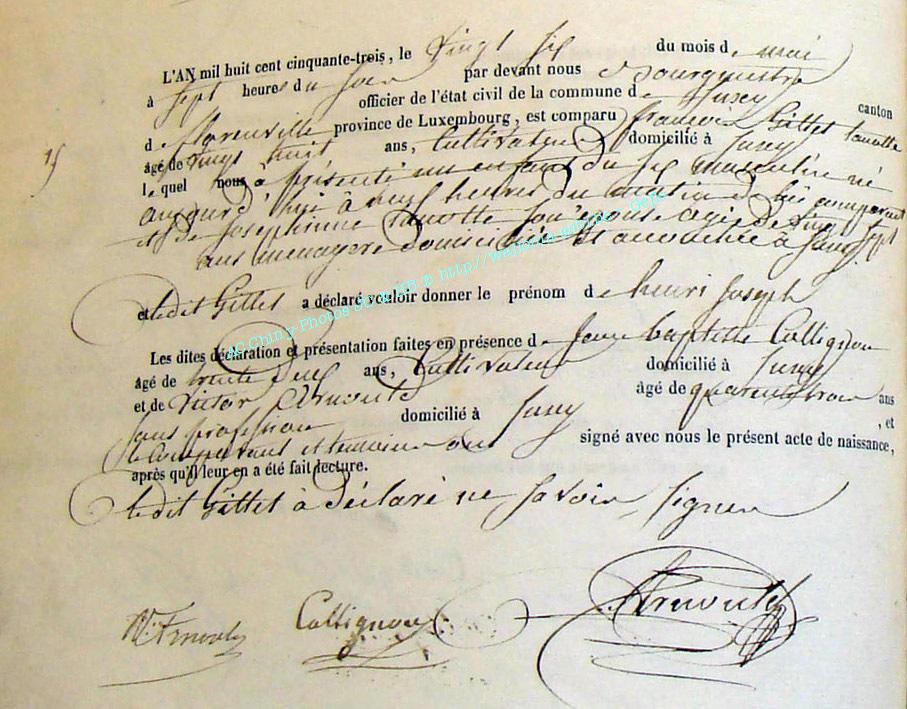 L'AN mil huit cent cinquante-trois, le vingt six du mois de mai
à sept heures du soir par devant nous Bourguestre
officier de l'état civil de la commune de Jusey canton
de florenville province de Luxembourg, est comparu francois Gillet
âgé de vingt huit ans, Cultivateur domicilié à Jusey
le quel nous à présenté un enfant du sex masculin né
aujourd'hue à heures du matin de lui comparant
et de Josephinne son épouse agée de vingt sept
ans menagere domiciliée et accouchée à Jusey
et ledit Gillet a déclaré vouloir donner le prénom de henri Joseph
Les dites déclaration et présentation faites en présence de Jean baptiste Collignon
âgé de trente deux ans, Cultivateur domicilié à Jusey
et de Victor Arnould âgé de quarente trois ans
sans profession domicilié à Jusey , et
le comparant et temoins ont signé avec nous le présent acte de naissance,
après qu'il leur en a été fait lecture.
ledit Gillet à déclaré ne savoir signer
15
V. Arnould Collignon Arnould
AC Chiny Photos http://